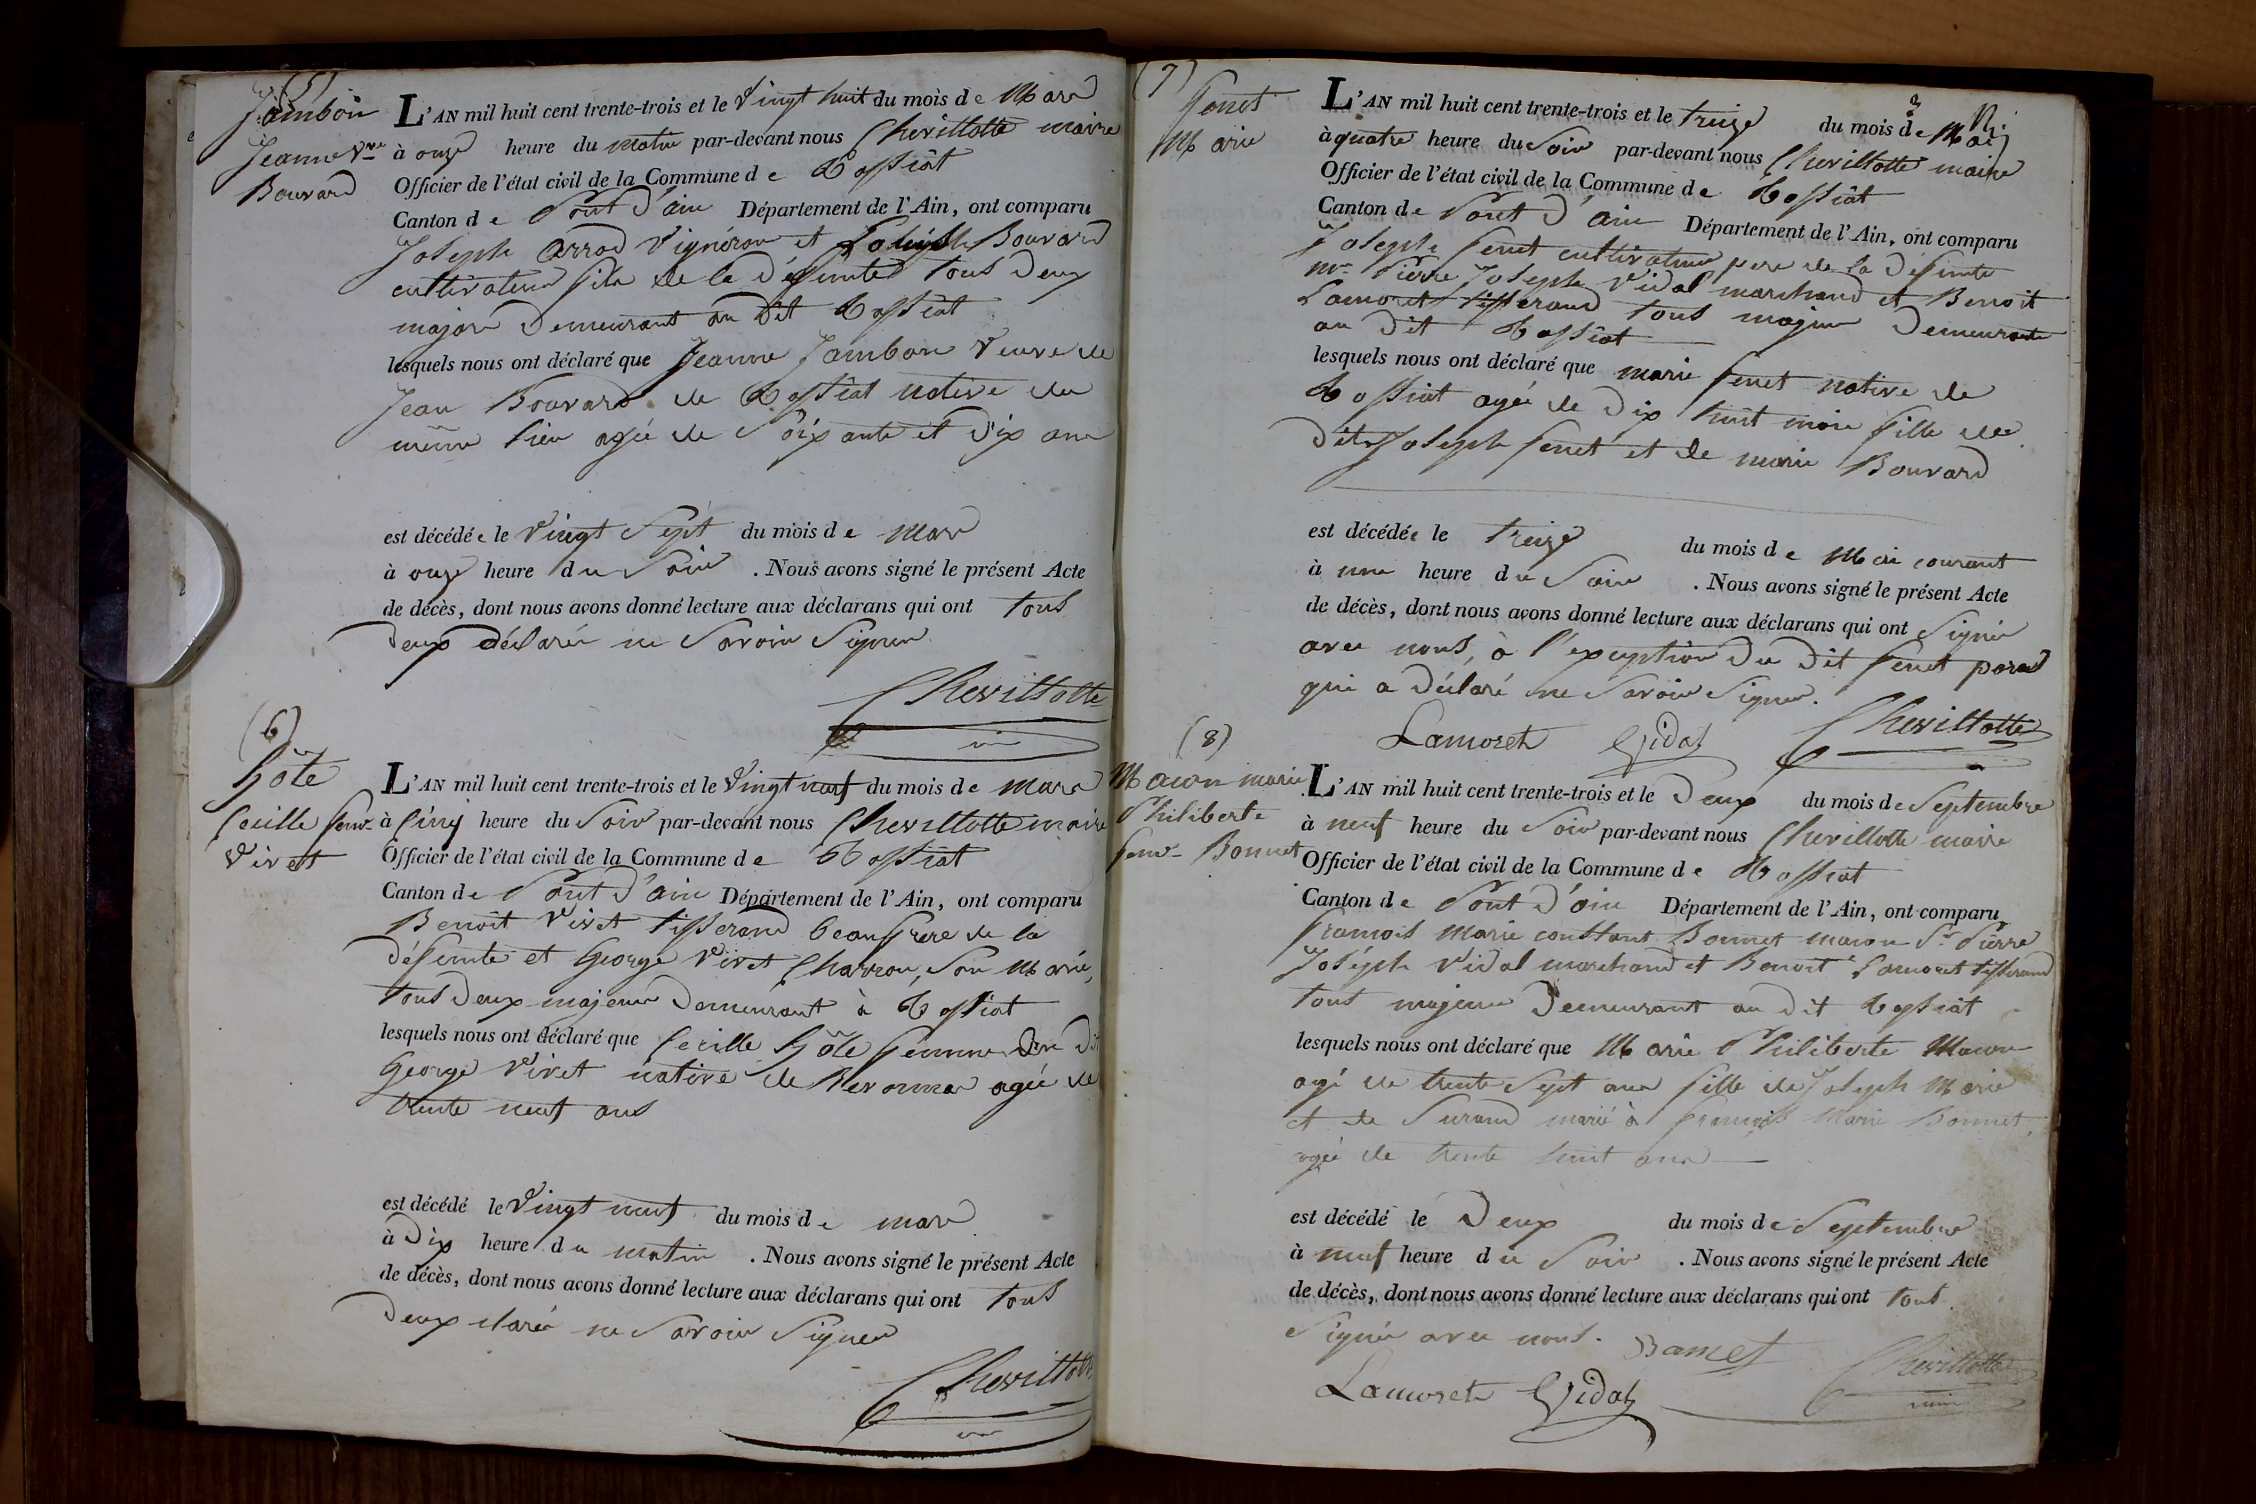 (5)
Jambon
Jeanne Vve
Bouvard
L'AN mil huit cent trente-trois et le vingt huit du mois de Mars
à onze heure du matin par-devant nous Chevillotte maire
Officier de l'état civil de la Commune de Bossiat
Canton de Pont d'ain Département de l'Ain, ont comparu
Joseph Arrod Vignéron et Bouvard
cultivateur fils de la défunte tous deux
majors demeurant au dit Bossiat
lesquels nous ont déclaré que Jeanne Jambon veuve de
Jean Bouvard de Bossiat native du
même lieu agée de soixante et dix ans
est décédée le vingt sept du mois de mars
à onze heure du soir . Nous avons signé le présent Acte
de décès, dont nous avons donné lecture aux déclarans qui ont tous
deux déclaré ne savoir signer
Chevillotte
(6)
hôte
Cecille fem-
Viret
L'AN mil huit cent trente-trois et le vingt neuf du mois de mars
à cinq heure du soir par-devant nous Chevillotte maire
Officier de l'état civil de la Commune de Bossiat
Canton de Pont d'ain Département de l'Ain, ont comparu
Benoit Viret tisserand beaufrere de la
défunte et George Viret Charron, son marié,
tous deux majeurs demeurant à Bossiat
lesquels nous ont déclaré que Cecille hôte femme du dit
George Viret native de agée de
trente neuf ans
est décédé le vingt neuf du mois de mars
à dix heure du matin . Nous avons signé le présent Acte
de décès, dont nous avons donné lecture aux déclarans qui ont tous
deux claré ne savoir signer
Chevillotte
(7)
fenet
Marie
L'AN mil huit cent trente-trois et le treize du mois de Mai
à quatre heure du soir par-devant nous Chevillotte maire
Officier de l'état civil de la Commune de Bossiat
Canton de Pont d'ain Département de l'Ain, ont comparu
Joseph fenet cultivateur pere de la défunte
mr. Pierre Joseph Vidal marchand et Benoit
Lamoret tisserand tous majeur demeurant
au dit Bossiat
lesquels nous ont déclaré que marie fenet native de
Bossiat agée de dix huit mois fille de
dit Joseph fenet et de marie Bouvard
est décédée le treize du mois de Mai courant
à une heure du soir . Nous avons signé le présent Acte
de décès, dont nous avons donné lecture aux déclarans qui ont signé
avec nous, à l'exception du dit fenet
qui a déclaré ne savoir signer.
Lamoret Vidal Chevillotte
(8)
Macon marie
Philiberte
fem- Bonnet
L'AN mil huit cent trente-trois et le deux du mois de Septembre
à neuf heure du soir par-devant nous Chevillotte maire
Officier de l'état civil de la Commune de Bossiat
Canton de Pont d'ain Département de l'Ain, ont comparu
francois Marie constant Bonnet macon Sr. Pierre
Joséph Vidal marchand et Benoit Lamoret tisserand
tous majeur demeurant au dit Bossiat
lesquels nous ont déclaré que Marie Philiberte Macon
agé de trente sept ans fille de Joseph Marie
et de marié à francois Marie Bonnet,
agée de trente huit ans
est décédé le deux du mois de Septembre
à neuf heure du soir . Nous avons signé le présent Acte
de décès, dont nous avons donné lecture aux déclarans qui ont tous
signé avec nous.
Bonnet Chevillotte
Lamoret Vidal